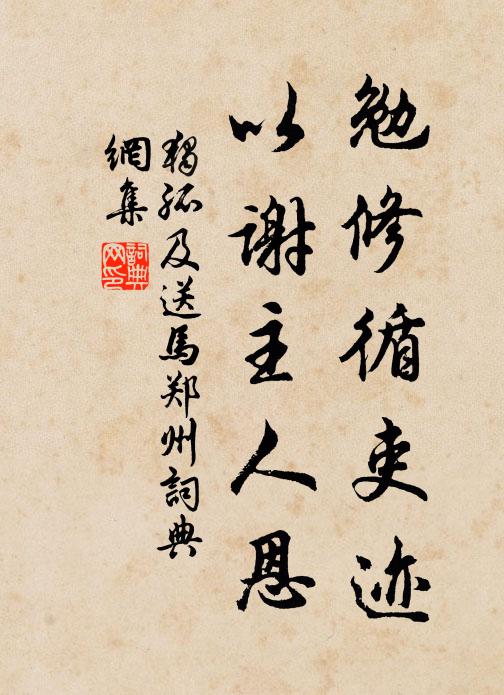 勉修循吏迹
以謝主人恩
獨孤及送馬郑州詞典
網集
詞典网印